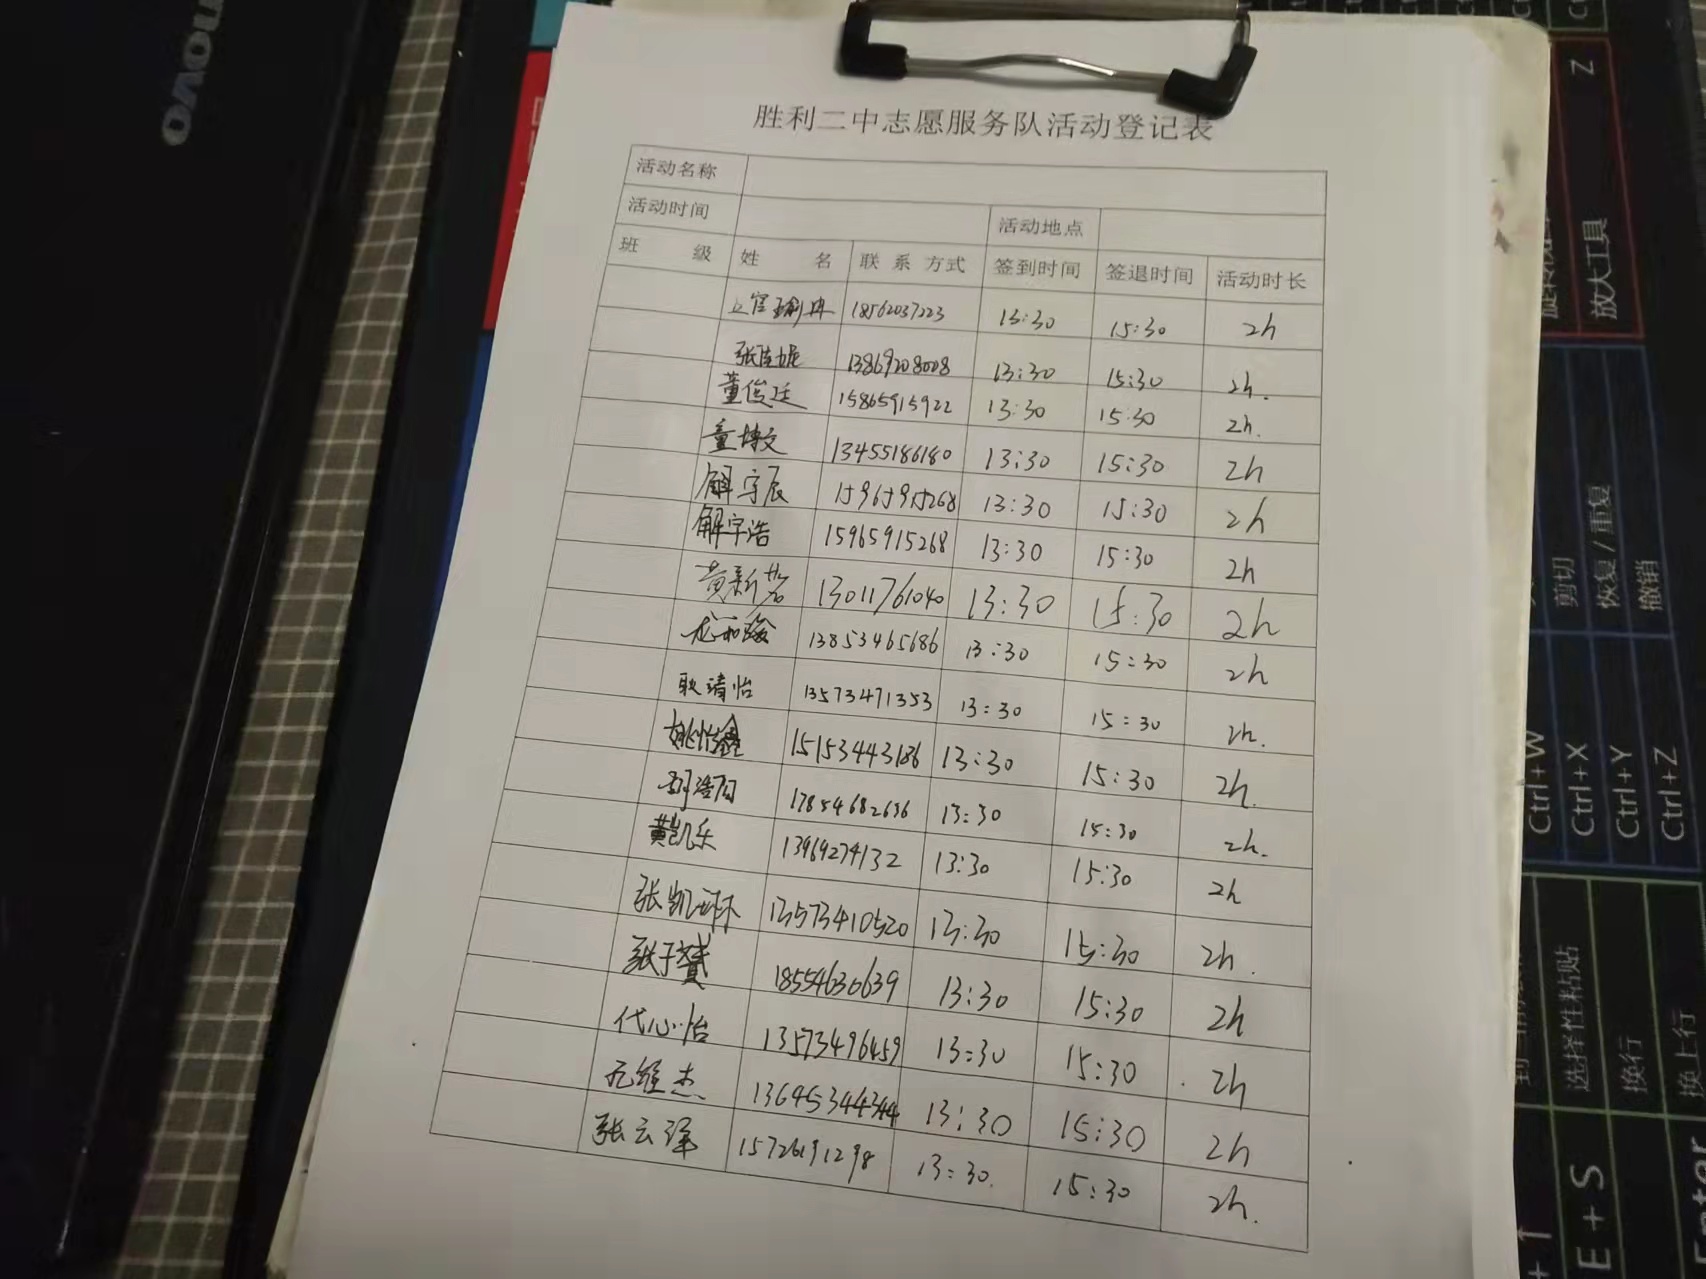 novo
胜利二中志愿服务队活动登记表
活动名称
活动时间 活动地点
班 级 姓 名 联系方式 签到时间 签退时间 活动时长
18562037223 13:30 15:30 2h
13869208008 13:30 15:30 2h.
董俊廷 15865915922 13:30 15:30 2h.
董博文 13455186180 13:30 15:30 2h
解宇辰 15965915268 13:30 15:30 2h
解宇浩 15965915268 13:30 15:30 2h
黄新茗 13011761040 13:30 15:30 2h
13853465686 13:30 15:30 2h
耿靖怡 13573471353 13:30 15:30 2h.
姚怡鑫 15153443186 13:30 15:30 2h.
13:30 15:30 2h.
黄凯乐 13969274132 13:30 15:30 2h
张凯琳 13573410520 13:30 15:30 2h.
张子赟 18554630639 13:30 15:30 2h
代心怡 13573496459 13:30 15:30 2h
13:30 15:30 2h
张云泽 15726191298 13:30. 15:30 2h.
Z
放大工具
剪切
恢复/重复
撤销
Ctrl+W
Ctrl+X
Ctrl+Y
Ctrl+Z
选择性粘贴
换行
换上行
E+S
Enter